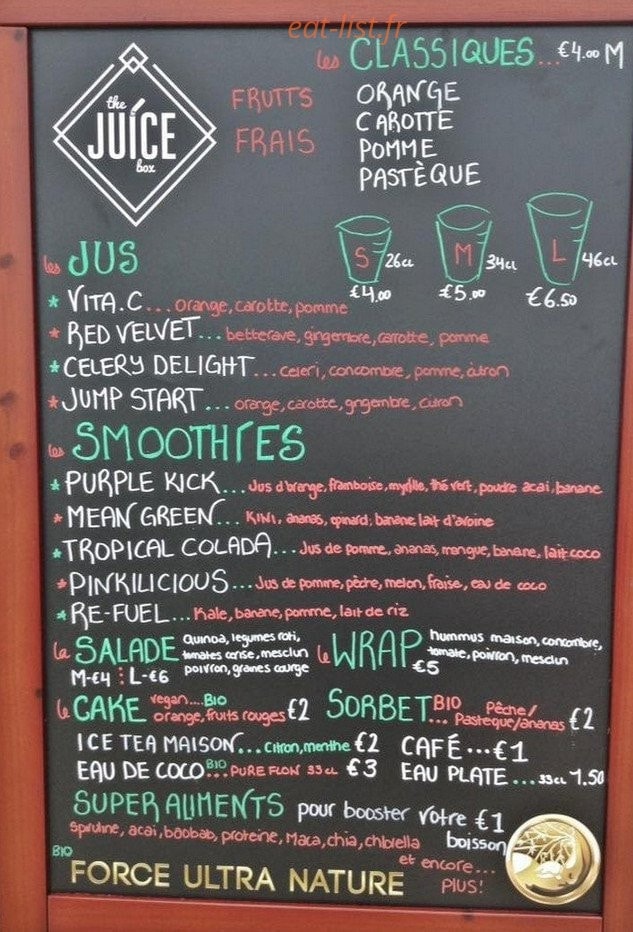 eat-list.fr
les CLASSIQUES... €4.00 M
the
JUICE
box
FRUTTS
FRAIS
ORANGE
CAROTTE
POMME
PASTÈQUE
les JUS
S 26cl
€4.00
M 34cl
€5.00
L 46cl
€6.50
* VITA.C... orange, carotte, pomme
* RED VELVET... betterave, gingembre, carrotte, pomme
* CELERY DELIGHT... celeri, concombre, pomme, citron
* JUMP START... orange, carotte, gingembre, citron
les SMOOTHIES
* PURPLE KICK... Jus d'orange, framboise, myrtille, thé vert, poudre acai, banane
* MEAN GREEN... KIWI, ananas, epinard, banane, lait d'avoine
* TROPICAL COLADA... Jus de pomme, ananas, mangue, banane, lait coco
* PINKILICIOUS... Jus de pomme, pêche, melon, fraise, eau de coco
* RE-FUEL... Kale, banane, pomme, lait de riz
la SALADE Quinoa, legumes roti,
tomates cerise, mesclun
poivron, graines courge
M-€4 : L-€6
le WRAP hummus maison, concombre,
tomate, poivron, mesclun
€5
le CAKE vegan.... BIO
orange, fruits rouges €2
SORBET BIO... Pêche/
Pasteque/ananas €2
ICE TEA MAISON... Citron, menthe €2
CAFÉ... €1
EAU DE COCO BIO... PURE FLON 33cl €3
EAU PLATE... 33cl 1.50
SUPER ALIMENTS pour booster votre €1
boisson
Spiruline, acai, baobab, proteine, Maca, chia, chlorella
et encore...
PLUS!
BIO
FORCE ULTRA NATURE